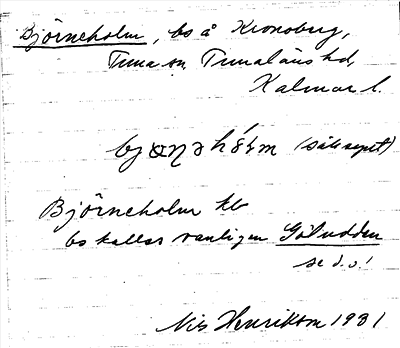 Björneholm, bs å Kronoberg,
Tuna sn, Tunaläns hd,
Kalmar l.
(sälls.epet)
Björneholm kb
bs kallas vanligen Göludden
se d.o!
Nils Henrikson 1981